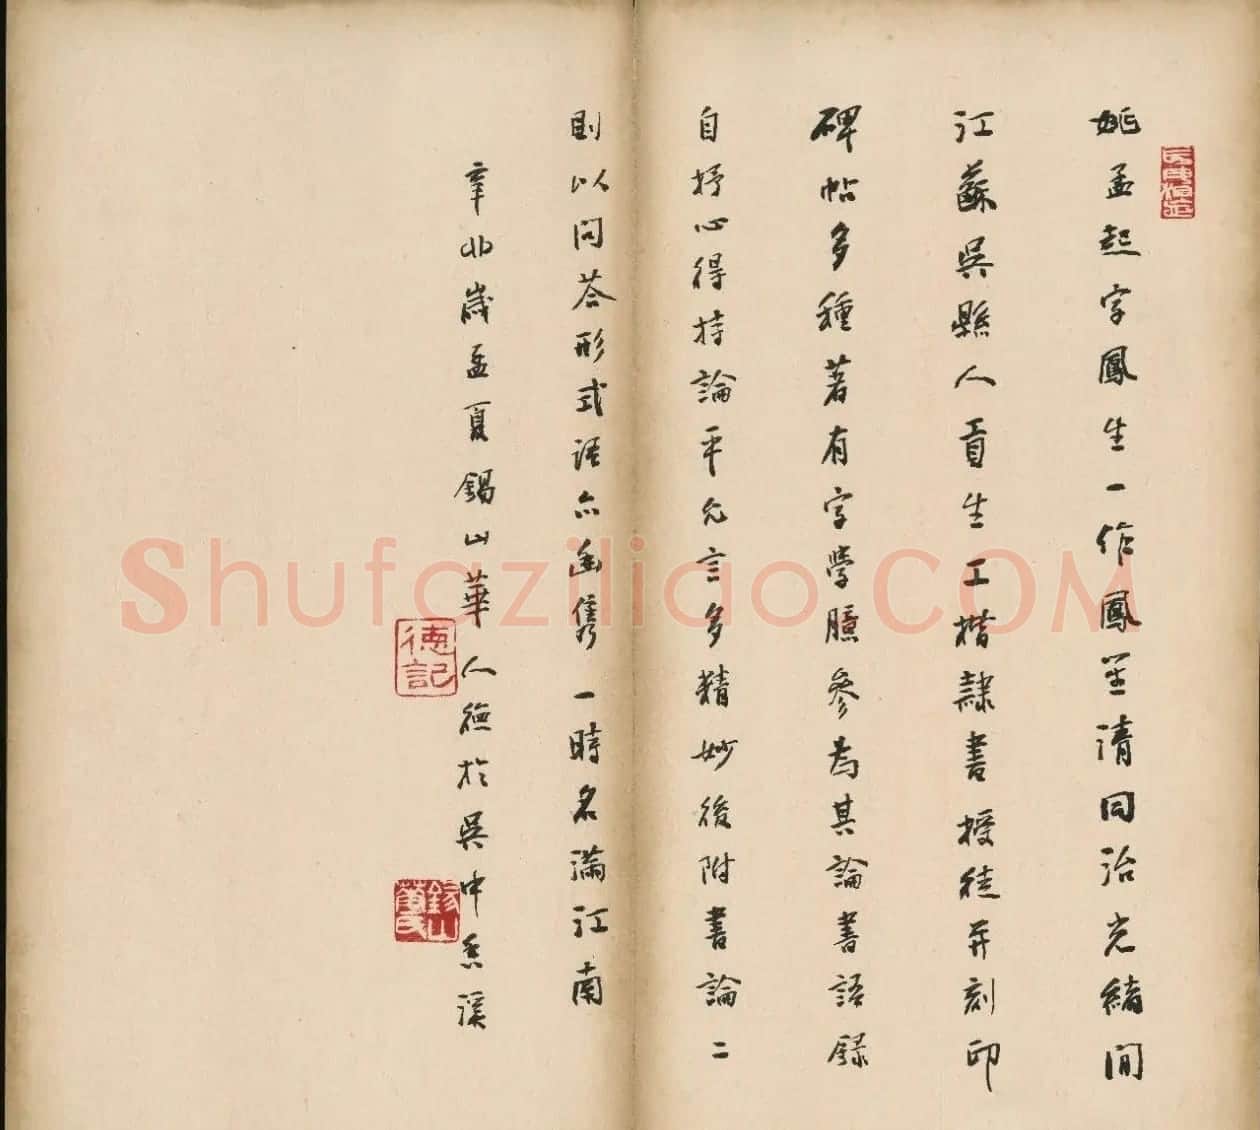 姚孟起字鳳生一作鳳笙清同治光緒間
江蘇吳縣人貢生工楷隸書授徒并刻印
碑帖多種著有字學臆參為其論書語錄
自抒心得持論平允言多精妙後附書論二
則以問荅形式語亦雋一時名滿江南
辛丑歲孟夏錫山華人德於吳中香溪
德記
錫山華氏
Shufaziliao.COM